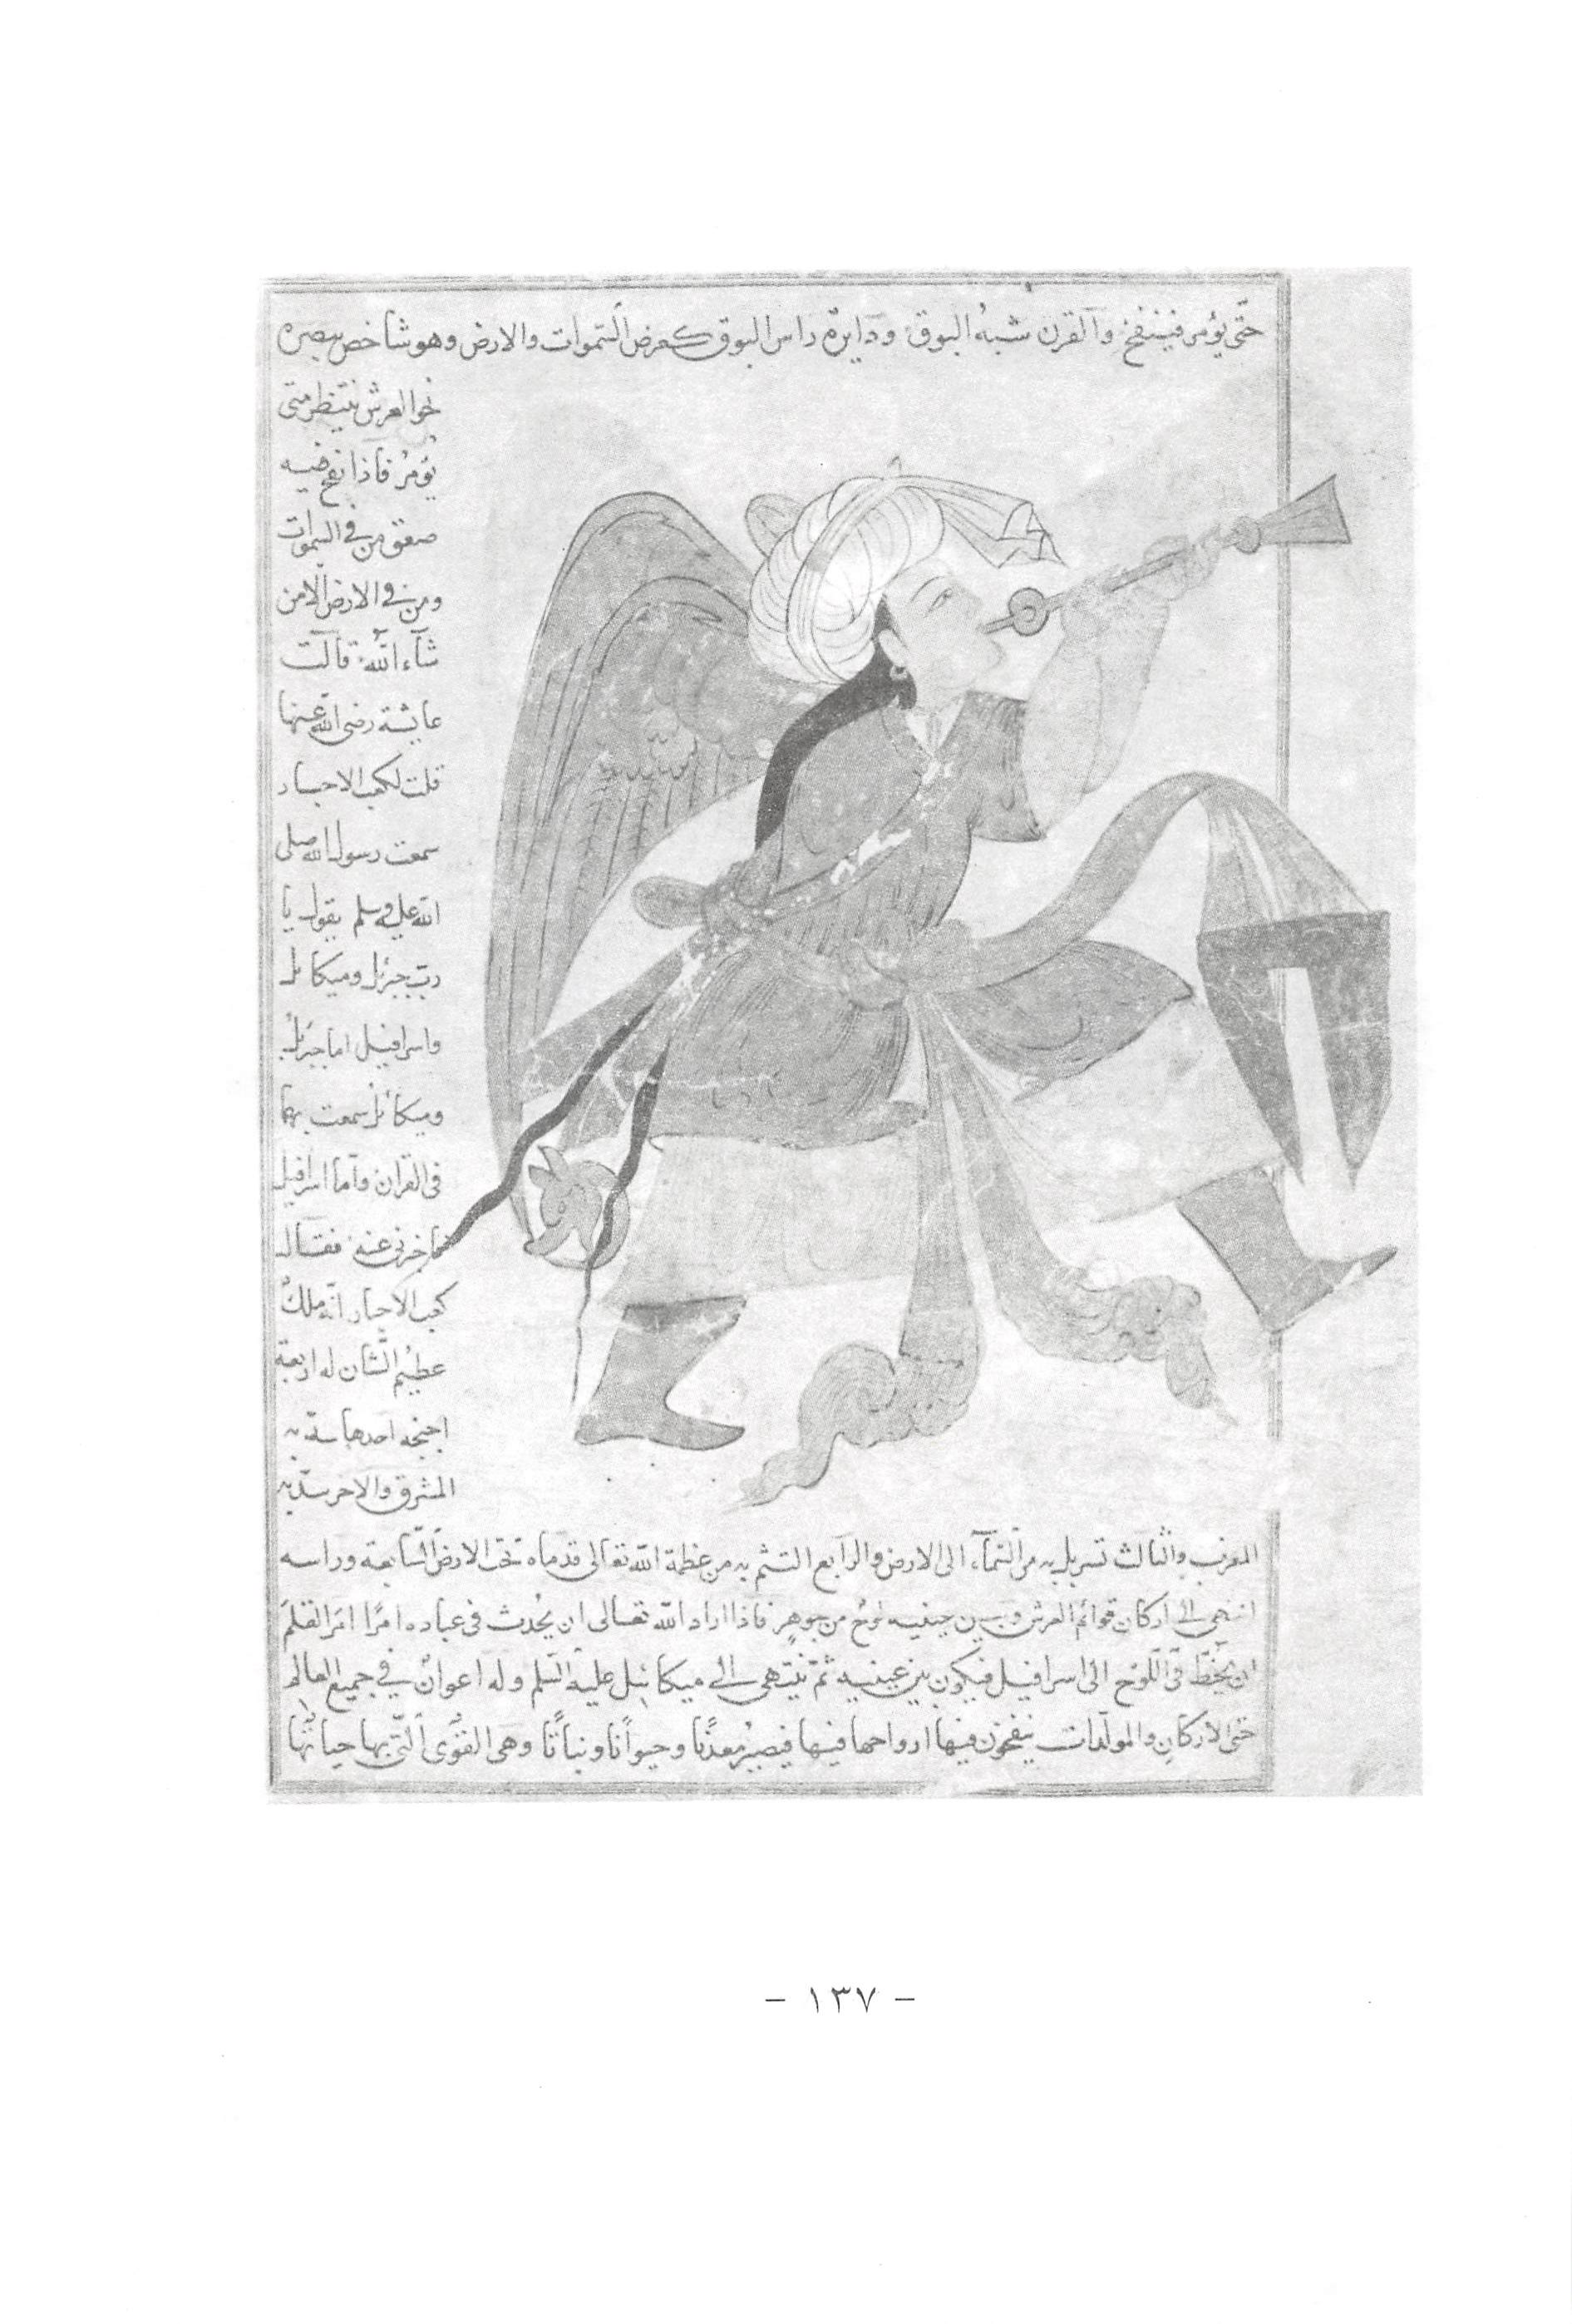 حتّى يؤمر فينفخ والقرن شبهُ البوق ودايرة راس البوق كعرض السّموات والارض وهو شاخص ببصره
نحو العرش ينتظر متى
يؤمرُ فاذا نفخ فيه
صعق من في السموات
ومن في الارض الّا من
شآء اللّه قالت
عايشة رضى اللّه عنها
قلت لكعب الاحبار
سمعت رسول اللّه صلى
اللّه عليه وسلم يقول يا
ربّ جبرئل وميكائل
واسرافيل اما جبرئل
وميكائل سمعت بهما
فى القران وامّا اسرافيل
فاخبرنى عنه فقال
كعب الاحبار انّه ملكٌ
عظيم الشّان له اربعة
اجنحة احدها سدّ به
المشرق والاخر سدّ به
المغرب والثالث تسربل به من السّمآء الى الارض والرابع التثم به من عظمة اللّه تعالى قدماه تحت الارض السّابعة وراسه
انتهى الى اركان قوائم العرش وبين عينيه لوحٌ من جوهرٍ فاذا اراد اللّه تعالى ان يُحدث فى عباده امرًا امَر القلمَ
ان يخُطّ فى اللّوح الى اسرافيل فيكون بين عينيه ثمّ ينتهى الى ميكائيل عليه السّلم وله اعوانٌ في جميع العالم
حتى الاركان والمولّدات ينفخون فيها ارواحها فيها فيصيرُ معدنًا وحيوانًا ونباتًا وهى القوى الّتى بها حياتُها
- ١٣٧ -